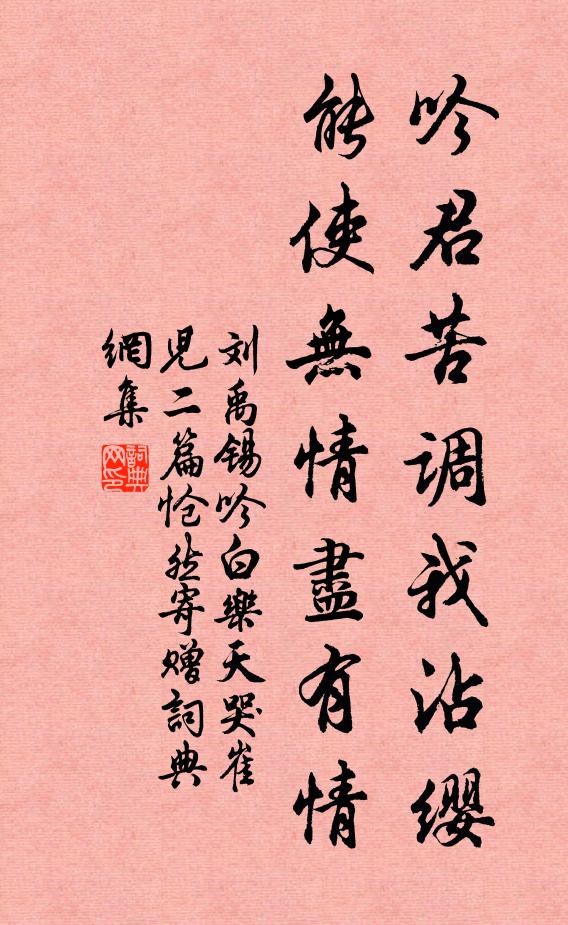 吟君苦调我沾缨
能使無情盡有情
刘禹锡吟白樂天哭崔
児二篇怆然寄赠詞典
網集
詞典
网印